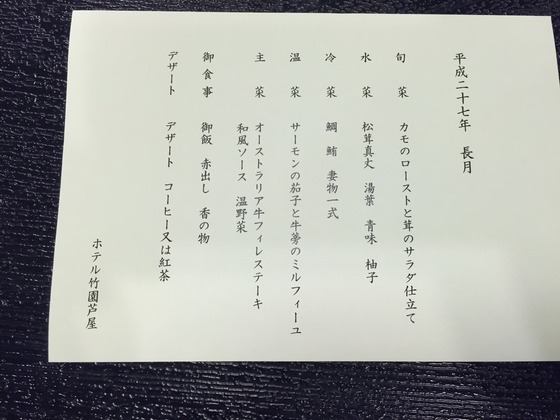 平成二十七年 長月
旬菜 カモのローストと茸のサラダ仕立て
水菜 松茸真丈 湯葉 青味 柚子
冷菜 鯛 鮪 妻物一式
温菜 サーモンの茄子と牛蒡のミルフィーユ
主菜 オーストラリア牛フィレステーキ
和風ソース 温野菜
御食事 御飯 赤出し 香の物
デザート デザート コーヒー又は紅茶
ホテル竹園芦屋